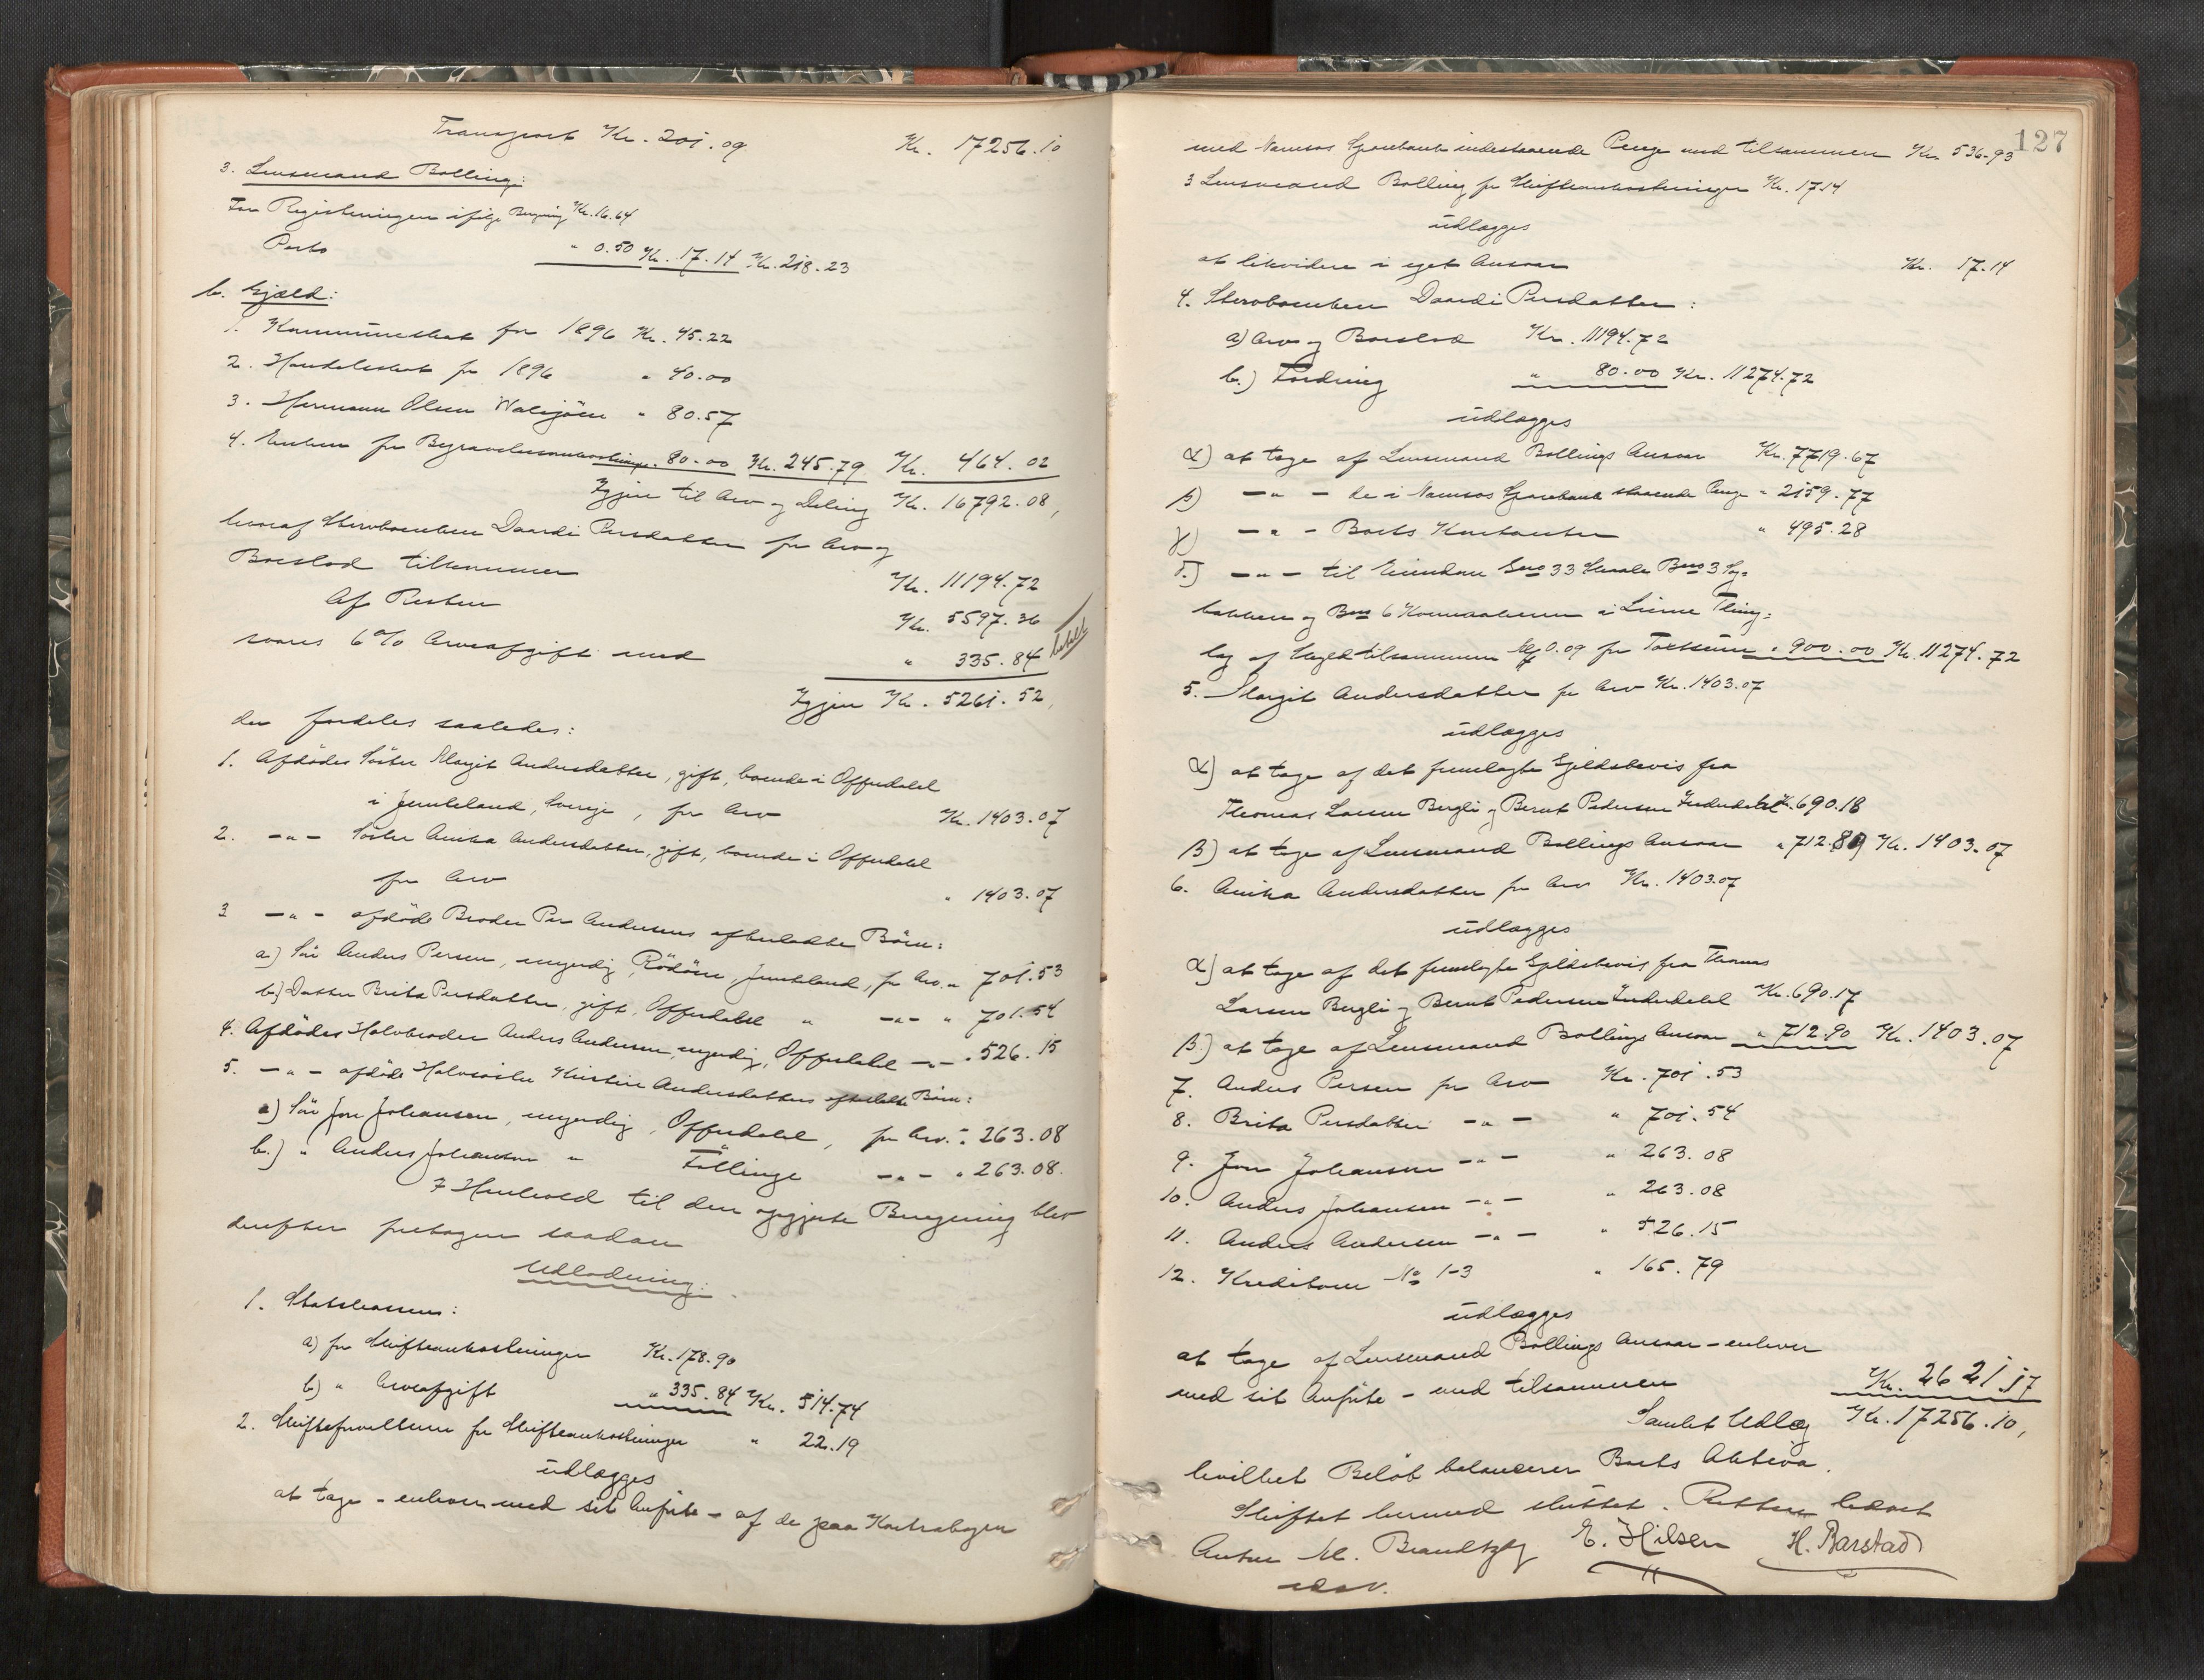 Transport Kr. 201.09 Kr. 17256.10
3. Lensmand Bolling:
For Registeringen ifølge Regning Kr. 16.64
Porto " 0.50 Kr. 17.14 Kr. 218.23
b. Gjæld:
1. Kommuneskat for 1896 Kr. 45.22
2. Handelsskat for 1896 " 40.00
3. Hermann Olsen " 80.57
4. Enken for Begravelsesomkostninger 80.00 Kr. 245.79 Kr. 464.02
Igjen til Arv og Deling Kr. 16792.08,
hvoraf Stervboenken Daardi Persdatter for Arv og
Boeslod tilkommer Kr. 11194.72
Af Resten Kr. 5597.36
svares 6% Arveafgift med " 335.84
betalt
Igjen Kr. 5261.52,
der fordeles saaledes:
1. Afdødes Søster Margit Andersdatter, gift, boende i Offerdahl
i Jemteland, Sverige, for Arv Kr. 1403.07
2. -"- Søster Anika Andersdatter, gift, boende i Offerdahl
for Arv " 1403.07
3 -"- afdøde Broder Per Andersens efterladte Børn:
a) Søn Anders Persen, myndig, Rödön, Jemteland, for Arv. " 701.53
b.) Datter Brita Persdatter, gift, Offerdahl " -"- " 701.54
4. Afdødes Halvbroder Anders Andersen, myndig, Offerdahl -"- " 526.15
5. -"- afdøde Halvsøster Kirstine Andersdatters efterladte Børn:
a) Søn Jon Johansen, myndig, Offerdahl, for Arv. " 263.08
b.) " Anders Johansen " Föllinge -"- " 263.08.
I Henhold til den opgjorte Beregning blev
derefter foretagen saadan
Udlodning:
1. Statskassen:
a) for Skifteomkostninger Kr. 178.90
b) " Arveafgift " 335.84 Kr. 514.74
2. Skifteforvalteren for Skifteomkostninger " 22.19
udlægges
at tage - enhver med sit Anførte - af de paa Kontrabogen
127
med Namsos Sparebank indestaaende Penge med tilsammen Kr. 536.93
3 Lensmand Bolling for Skifteomkostninger Kr. 17.14
udlægges
at likvidere i eget Ansvar Kr. 17.14
4. Stervboenken Daardi Persdatter:
a) Arv og Boeslod Kr. 11194.72
b.) Fordring " 80.00 Kr. 11274.72
udlægges
α) at tage af Lensmand Bollings Ansvar Kr. 7719.67
β) -"- de i Namsos Sparebank staaende Penge " 2159.77
γ) -"- Boets Kontanter " 495.28
δ.) -"- til Eiendom Gno 33 Bno 3
og Bno 6 i Lierne Thing=
lag af Skyld tilsammen Mk 0.09 for Taxtsum " 900.00 Kr. 11274.72
5. Margit Andersdatter for Arv Kr. 1403.07
udlægges
α) at tage af det fremlagte Gjeldsbevis fra
Thomas Larsen Bergli og Bernt Pedersen Inderdahl Kr. 690.18
β) at tage af Lensmand Bollings Ansvar " 712.89 Kr. 1403.07
6. Anika Andersdatter for Arv Kr. 1403.07
udlægges
α) at tage af det fremlagte Gjeldsbevis fra Thomas
Larsen Bergli og Bernt Pedersen Inderdahl Kr. 690.17
β.) at tage af Lensmand Bollings Ansvar " 712.90 Kr. 1403.07
7. Anders Persen for Arv Kr. 701.53
8. Brita Persdatter -"- " 701.54
9. Jon Johansen -"- " 263.08
10. Anders Johansen -"- " 263.08
11. Anders Andersen -"- " 526.15
12. Kreditorer No 1-3 " 165.79
udlægges
at tage af Lensmand Bollings Ansvar - enhver
med sit Anførte - med tilsammen Kr. 2621.17
Samlet Udlæg Kr. 17256.10,
hvilket Beløb balancerer Boets Aktiva.
Skiftet hermed sluttet. Retten hævet
Anton M. Brandtzæg E. Hilsen H. Barstad